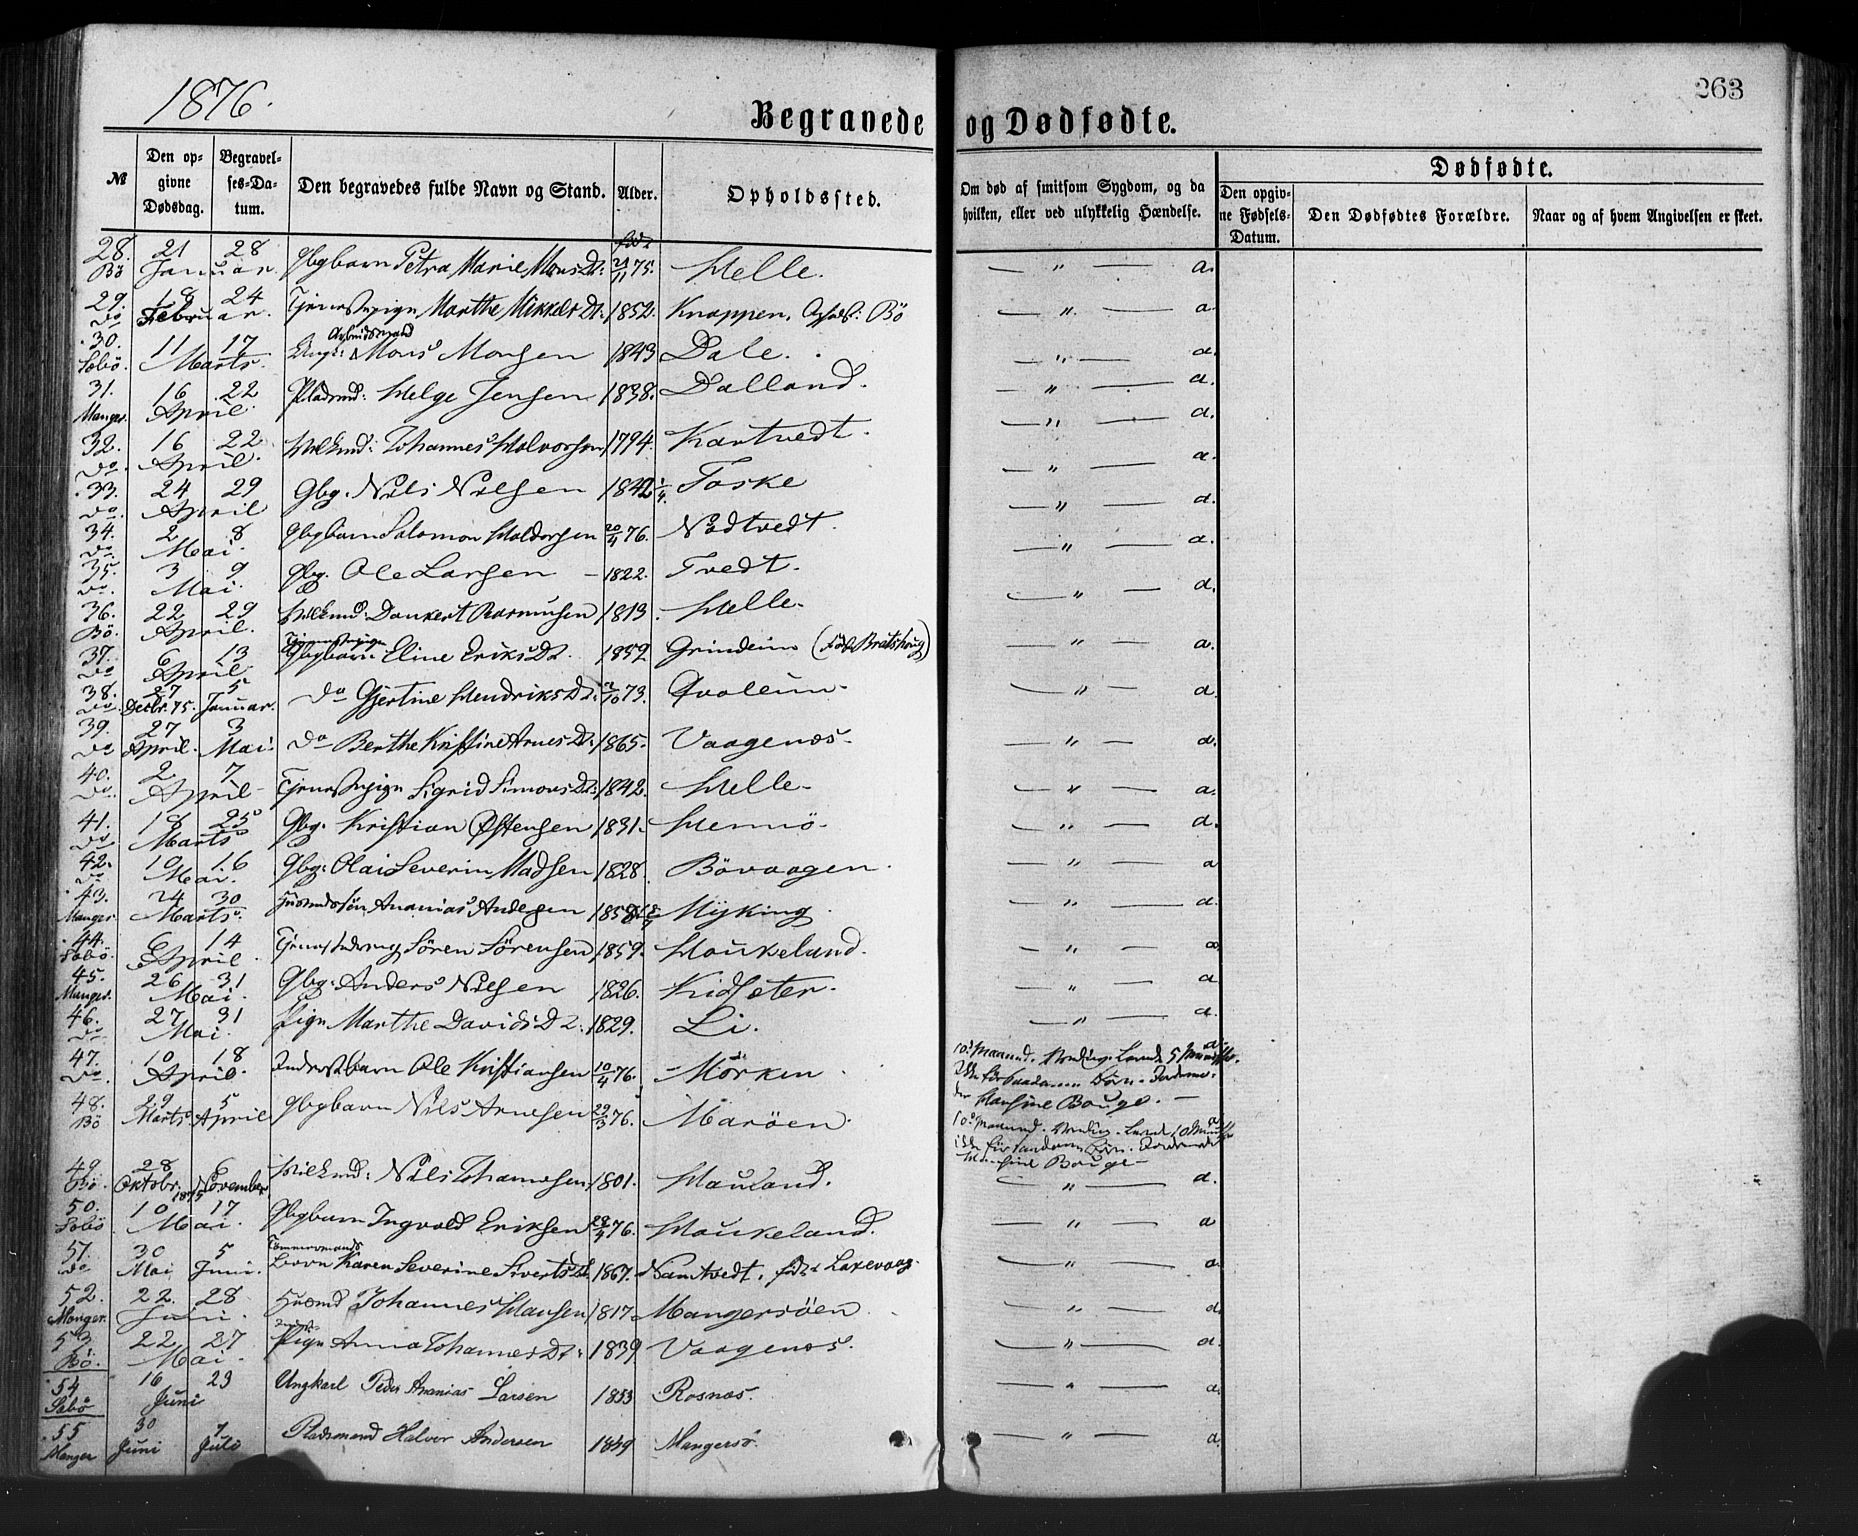 1876.
263
Begravede og Dødfødte.
№
Den opgivne Dødsdag.
Begravelses-Datum.
Den begravedes fulde Navn og Stand.
Alder.
Opholdssted.
Om død af smitsom Sygdom, og da hvilken, eller ved ulykkelig Hændelse.
Dødfødte.
Den opgivne Fødsels-Datum.
Den Dødfødtes Forældre.
Naar og af hvem Angivelsen er skeet.
28. Bö 21 28 Januar. Gbgbarn Petra Marie Mons Dt. född 21/11 75. Helle. — " — a.
29. Do 18 24 Februar. Tjenestepige Marthe Mikkels Dt. 1852. Knappen, Bö — " — a.
30. Sæbö. 11 17 Marts. Arbeidsmand Mons Monsen 1843 Dale. — " — a.
31. Manger. 16 22 April. Pladsmd: Helge Jensen 1838. Dalland. — " — a.
32. Do. 16 22 April. Johannes Halvorsen 1794. Kartvedt. — " — a.
33. Do. 24 29 April Gbg. Nils Nilsen 1842 Toske — " — a.
34. Do. 2 8 Mai. Gbgbarn Salomon Haldorsen 20/4 76. Nödtvedt. — " — a.
35. Do. 3 9 Mai. Gbg. Ole Larsen — 1822. Tvedt. — " — a.
36. Bö. 22 29 April. Dankert Rasmusen 1813. Helle. — " — a.
37. Do 6 13 April. Tjenestepige Gbgbarn Eline Eriks Dt. 1852 Grindeim (Född Bratshoug) — " — a.
38. Do. 27 5 Decbr. 75. Januar. Do Gjertine Hendriks Dt. 73. Qvaleim. — " — a.
39. Do 27 3 April. Mai. Do Berthe Kristine Arnes Dt. 1865. Vaagenæs. — " — a.
40. Do. 2 7 April Tjenestepige Sigrid Simons Dt. 1842. Helle. — " — a.
41. Do 18 25 Marts Gbg. Kristian Östensen 1831. Hennö. — " — a.
42. Do 10 16 Mai. Gbg: Olai Severin Madsen 1828. Bövaagen. — " — a
43. Manger. 24 30 Marts. Husmdssön Ananias Andersen Myking. — " — a.
44. Sæbö. 6 14 April. Sören Sörensen 1859. Haukeland. — " — a
45. Manger. 26 31 Mai. Gbg: Anders Nilsen 1826. Kidsæter. — " — a
46. Do 27 31 Mai. Pige Marthe Davids Dt. 1829. Li. — " — a.
47. Do. 10 18 April. Inderstbarn Ole Kristiansen 10/4 76. Mörken. Levede 5
der Hansine Bouge. —
48. Bö 29 5 Marts April Gbgbarn Nils Arnesen 29/3 76. Maröen.
Hansine Bouge —
49. Bö. 28 6 Oktobr. November 1875 Nils Johannesen 1801. Hauland. — " — a.
50. Sæbö 10 17 Mai. Gbgbarn Ingvald Eriksen 28/4 76. Haukeland. — " — a
51. Do 30 5 Mai Juni. Tömmermands Barn Karen Severine Siverts Dt. 1867. Namtvedt, född Laxevaag. — " — a
52. Manger. 22 28 Juni. Husmd Johannes Hansen 1817 Mangersöen — " — a.
53. Bö. 22 27 Mai. Pige Anna Johannes Dt. 1839 Vaagenæs. — " — a.
54 Sæbö 16 23 Juni Ungkarl Peder Ananias Larsen 1853 Rosnæs. — " — a.
55 Manger 30 7 Juni Juli Pladsmand Halvor Andersen 1849 Mangersö. — " — a.